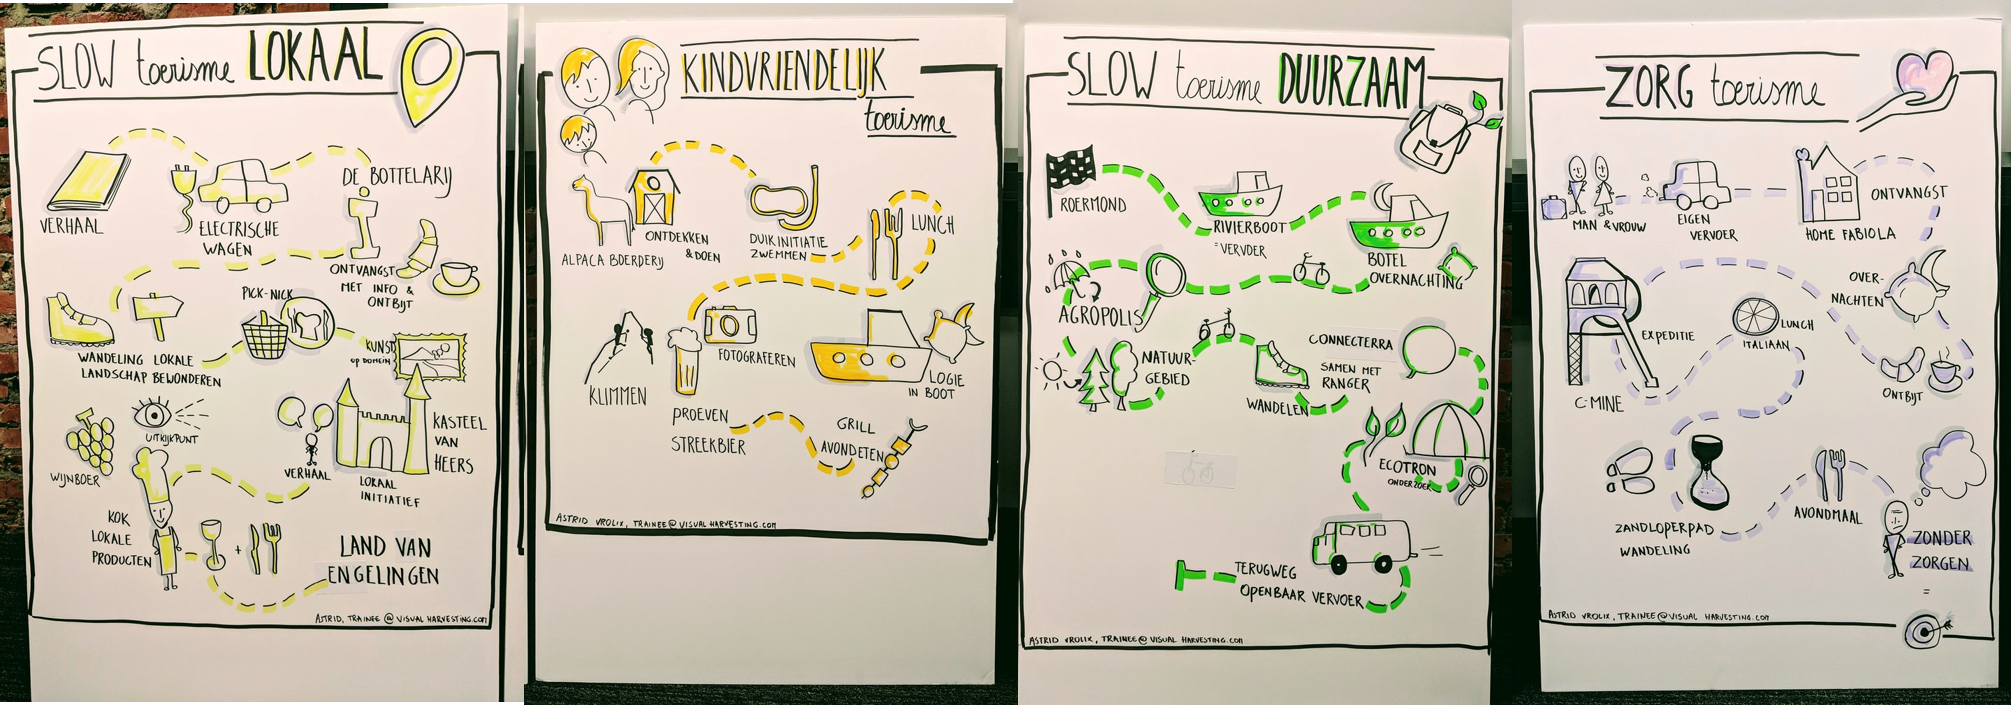 SLOW toerisme LOKAAL
VERHAAL
ELECTRISCHE
WAGEN
DE BOTTELARIJ
ONTVANGST
MET INFO &
ONTBIJT
WANDELING LOKALE
LANDSCHAP BEWONDEREN
PICK-NICK
KUNST
OP DOMEIN
KASTEEL
VAN
HEERS
LOKAAL
INITIATIEF
VERHAAL
UITKIJKPUNT
WIJNBOER
KOK
LOKALE
PRODUCTEN
+
LAND VAN
ENGELINGEN
ASTRID, TRAINEE @ VISUAL HARVESTING.COM
KINDVRIENDELIJK
toerisme
ALPACA BOERDERIJ
ONTDEKKEN
& DOEN
DUIKINITIATIE
ZWEMMEN
LUNCH
KLIMMEN
PROEVEN
STREEKBIER
FOTOGRAFEREN
LOGIE
IN BOOT
GRILL
AVONDETEN
ASTRID VROLIX, TRAINEE @ VISUAL HARVESTING.COM
SLOW toerisme DUURZAAM
ROERMOND
RIVIERBOOT
= VERVOER
BOTEL
OVERNACHTING
AGROPOLIS
NATUUR-
GEBIED
WANDELEN
SAMEN MET
RANGER
CONNECTERRA
ECOTRON
ONDERZOEK
TERUGWEG
OPENBAAR VERVOER
ASTRID VROLIX, TRAINEE @ VISUAL HARVESTING.COM
ZORG toerisme
MAN & VROUW
EIGEN
VERVOER
HOME FABIOLA
ONTVANGST
OVER-
NACHTEN
ONTBIJT
C-MINE
EXPEDITIE
LUNCH
ITALIAAN
ZANDLOPERPAD
WANDELING
AVONDMAAL
ZONDER
ZORGEN
=
ASTRID VROLIX, TRAINEE @ VISUAL HARVESTING.COM